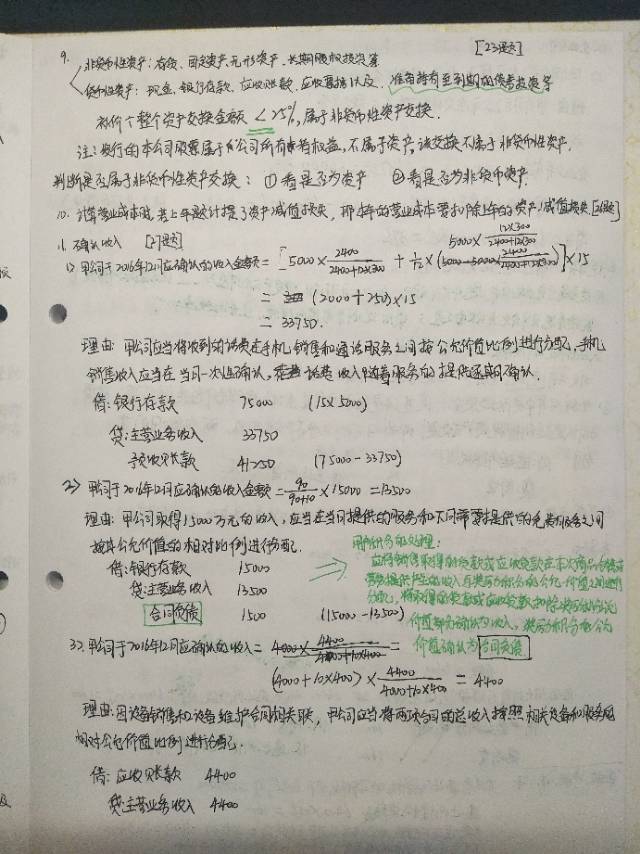 9. 非货币性资产：存货、固定资产、无形资产、长期股权投资等 [23题]
货币性资产：现金、银行存款、应收账款、应收票据以及 准备持有至到期的债券投资等
补价÷整个资产交换金额 < 25%，属于非货币性资产交换.
注：发行的本公司股票属于公司所有者权益，不属于资产，该交换不属于非货币性资产.
判断是否属于非货币性资产交换：①看是否为资产 ②看是否为非货币资产.
10. 计算营业成本时，若上年题计提了资产减值损失，那今年的营业成本要扣除上年的资产减值损失 [26题]
11. 确认收入 [27题]
5000×12×300/(2400+12×300)
1) 甲公司于2016年12月应确认的收入金额 = [5000×2400/(2400+12×300) + 1/12×(5000-5000×2400/(2400+12×300))]×15
= (2000+250)×15
= 33750.
理由：甲公司应当将收到的话费在手机销售和通话服务之间按公允价值比例进行分配，手机
销售收入应当在当月一次性确认，话费收入随着服务的提供逐期确认.
借：银行存款 75000 (15×5000)
贷：主营业务收入 33750
预收账款 41250 (75000-33750)
2) 甲公司于2016年12月应确认的收入金额 = 90/(90+10)×15000 = 13500
理由：甲公司取得15000万元的收入，应当在当月提供的服务和下月需要提供的免费服务之间
按其公允价值的相对比例进行分配.
借：银行存款 15000
贷：主营业务收入 13500
合同负债 1500 (15000-13500)
积分的处理：
应将销售取得的货款或应收货款在本次商品销售或
劳务提供产生的收入与奖励积分的公允价值之间进行
分配，将取得的货款或应收货款扣除奖励积分公允
价值部分确认为收入，奖励积分的公允
价值确认为合同负债
3) 甲公司于2016年12月应确认的收入 = 4000×4400/(4400+10×400) =
(4000+10×400)×4400/(4000+10×400) = 4400
理由：因设备销售和设备维护合同相关联，甲公司应当将两项合同的总收入按照相关设备和服务的
相对公允价值比例进行分配.
借：应收账款 4400
贷：主营业务收入 4400